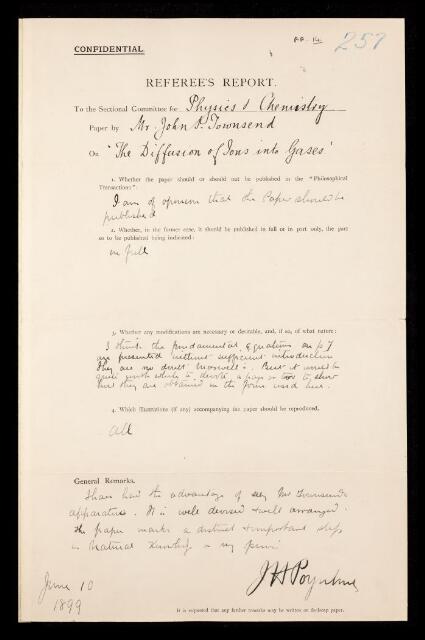 RR. 14.
257
CONFIDENTIAL
REFEREE'S REPORT.
To the Sectional Committee for Physics & Chemistry
Paper by Mr. John S. Townsend
On "The Diffusion of Ions into Gases'
1. Whether the paper should or should not be published in the "Philosophical
Transactions":
I am of opinion that the Paper should be
published
2. Whether, in the former case, it should be published in full or in part only, the part
so to be published being indicated:
in full
3. Whether any modifications are necessary or desirable, and, if so, of what nature:
I think the fundamental equations on p 7
are presented without sufficient introduction
They are no doubt Maxwell's. But it would be
quite worth while to devote a page or two to show
that they are obtained in the form used here.
4. Which illustrations (if any) accompanying the paper should be reproduced.
all
General Remarks.
I have had the advantage of seeing Mr Townsend's
apparatus. It is well devised & well arranged.
The paper marks a distinct & important step
in Natural Knowledge in my opinion
JH Poynting
June 10
1899
It is requested that any further remarks may be written on foolscap paper.